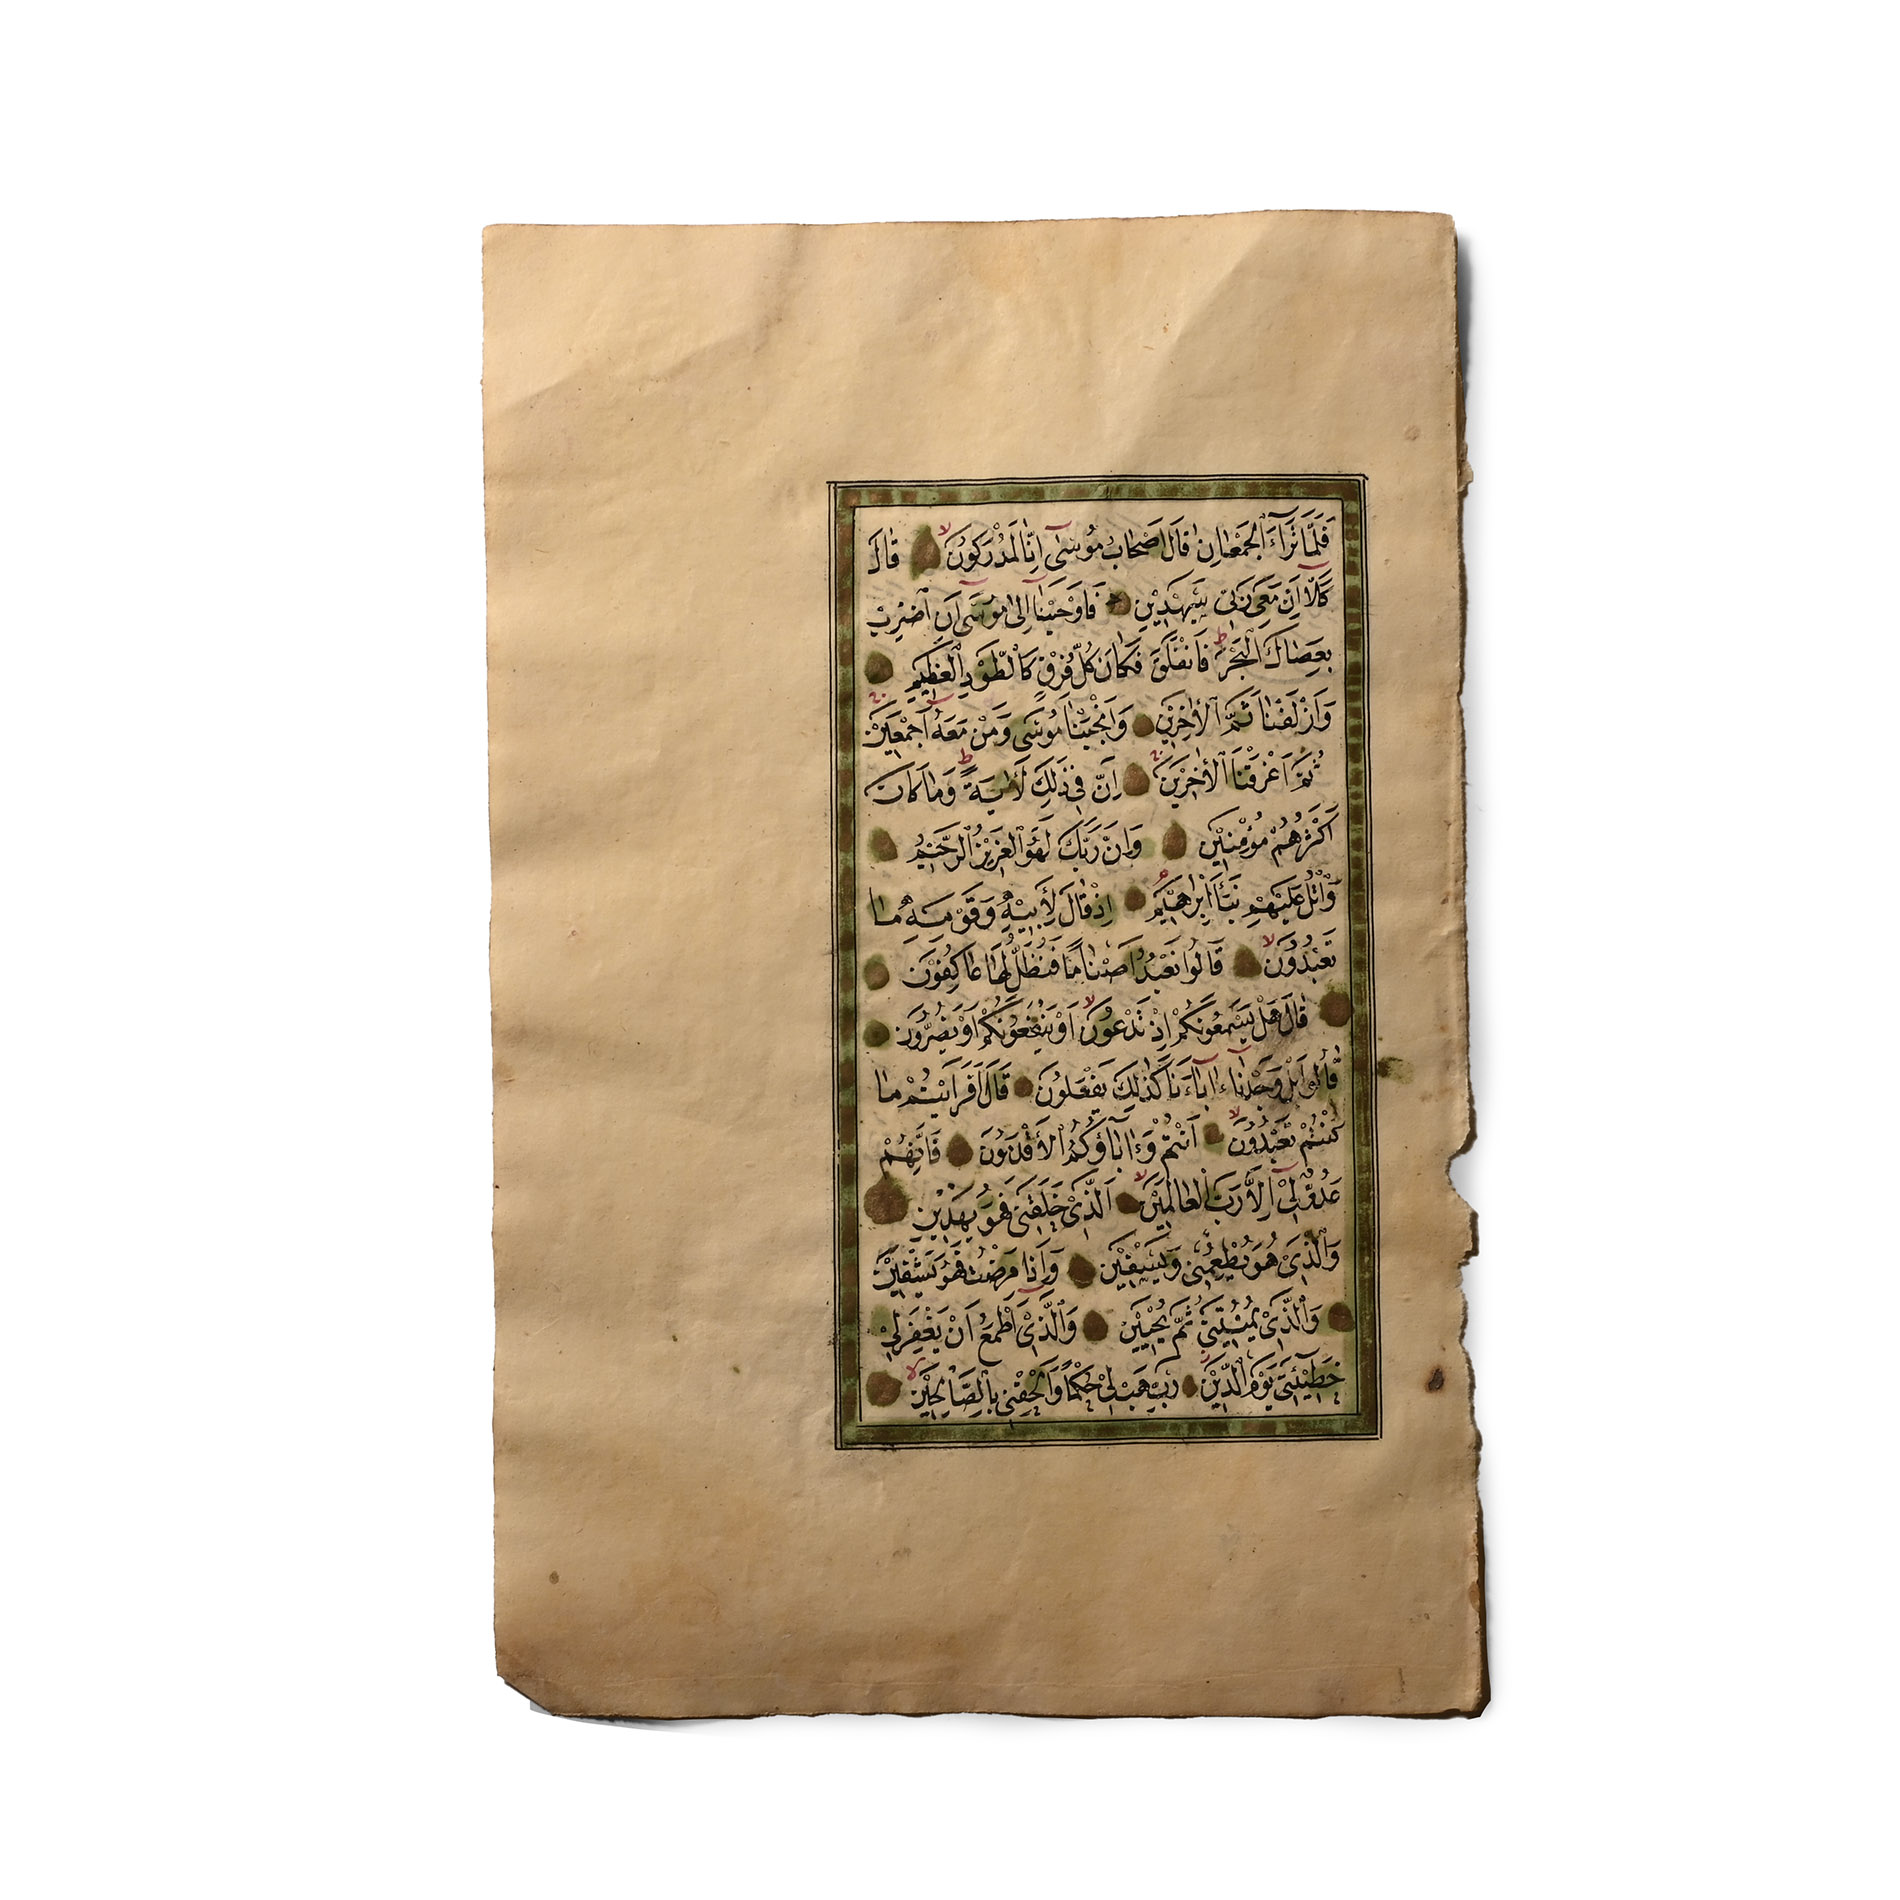 فَلَمَّا تَرَآءَ ٱلْجَمْعٰانِ قٰالَ اَصْحٰابُ مُوسٰٓى اِنّٰا لَمُدْرَكُونَ لا قٰالَ
كَلّٰآ اِنَّ مَعِىَ رَبّٖى سَيَهْدٖينِ فَاَوْحَيْنٰآ اِلىٰ مُوسٰٓى اَنِ ٱضْرِبْ
بِعَصٰاكَ ٱلْبَحْرَ ط فَانْفَلَقَ فَكٰانَ كُلُّ فِرْقٍ كَالْطَّوْدِ ٱلْعَظٖيمِ
وَاَزْلَفْنٰا ثَمَّ ٱلْاٰخَرٖينَ وَاَنْجَيْنٰا مُوسٰى وَمَنْ مَعَهُٓ اَجْمَعٖينَ
ثُمَّ اَغْرَقْنَا ٱلْاٰخَرٖينَ اِنَّ فٖى ذٰلِكَ لَاٰيَةً ط وَمٰا كٰانَ
اَكْثَرُهُمْ مُؤْمِنٖينَ وَاِنَّ رَبَّكَ لَهُوَ ٱلْعَزٖيزُ ٱلرَّحٖيمُ
وَٱتْلُ عَلَيْهِمْ نَبَاَ اِبْرٰاهٖيمَ م اِذْ قٰالَ لِاَبٖيهِ وَقَوْمِهٖ مٰا
تَعْبُدُونَ لا قٰالُوا نَعْبُدُ اَصْنٰامًا فَنَظَلُّ لَهٰا عٰاكِفٖينَ
قٰالَ هَلْ يَسْمَعُونَكُمْ اِذْ تَدْعُونَ لا اَوْ يَنْفَعُونَكُمْ اَوْ يَضُرُّونَ
قٰالُوا بَلْ وَجَدْنٰٓا ءٰابٰٓاءَنٰا كَذٰلِكَ يَفْعَلُونَ قٰالَ اَفَرَاَيْتُمْ مٰا
كُنْتُمْ تَعْبُدُونَ لا اَنْتُمْ وَءٰابٰٓاؤُكُمُ ٱلْاَقْدَمُونَ فَاِنَّهُمْ
عَدُوٌّ لٖىٓ اِلّٰا رَبَّ ٱلْعٰالَمٖينَ لا اَلَّذٖى خَلَقَنٖى فَهُوَ يَهْدٖينِ
وَٱلَّذٖى هُوَ يُطْعِمُنٖى وَيَسْقٖينِ وَاِذٰا مَرِضْتُ فَهُوَ يَشْفٖينِ
وَٱلَّذٖى يُمٖيتُنٖى ثُمَّ يُحْيٖينِ وَٱلَّذٖىٓ اَطْمَعُ اَنْ يَغْفِرَ لٖى
خَطٖيٓئَتٖى يَوْمَ ٱلدّٖينِ رَبِّ هَبْ لٖى حُكْمًا وَاَلْحِقْنٖى بِالصّٰالِحٖينَ لا